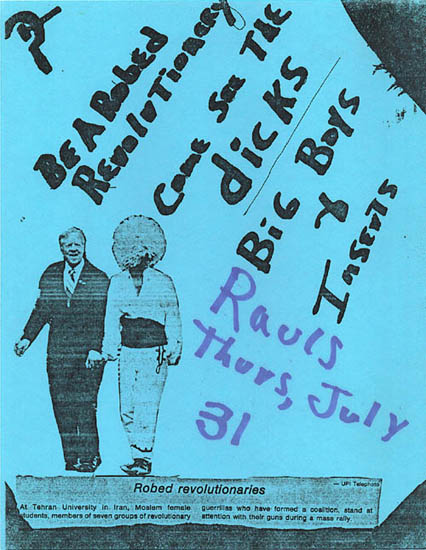 Be A Robed
Revolutionary
Come See The
dicks
Big Boys
Y
Inserts
Rauls
Thurs, July
31
Robed revolutionaries
— UPI Telephoto
At Tehran University in Iran, Moslem female
students, members of seven groups of revolutionary
guerrillas who have formed a coalition, stand at
attention with their guns during a mass rally.